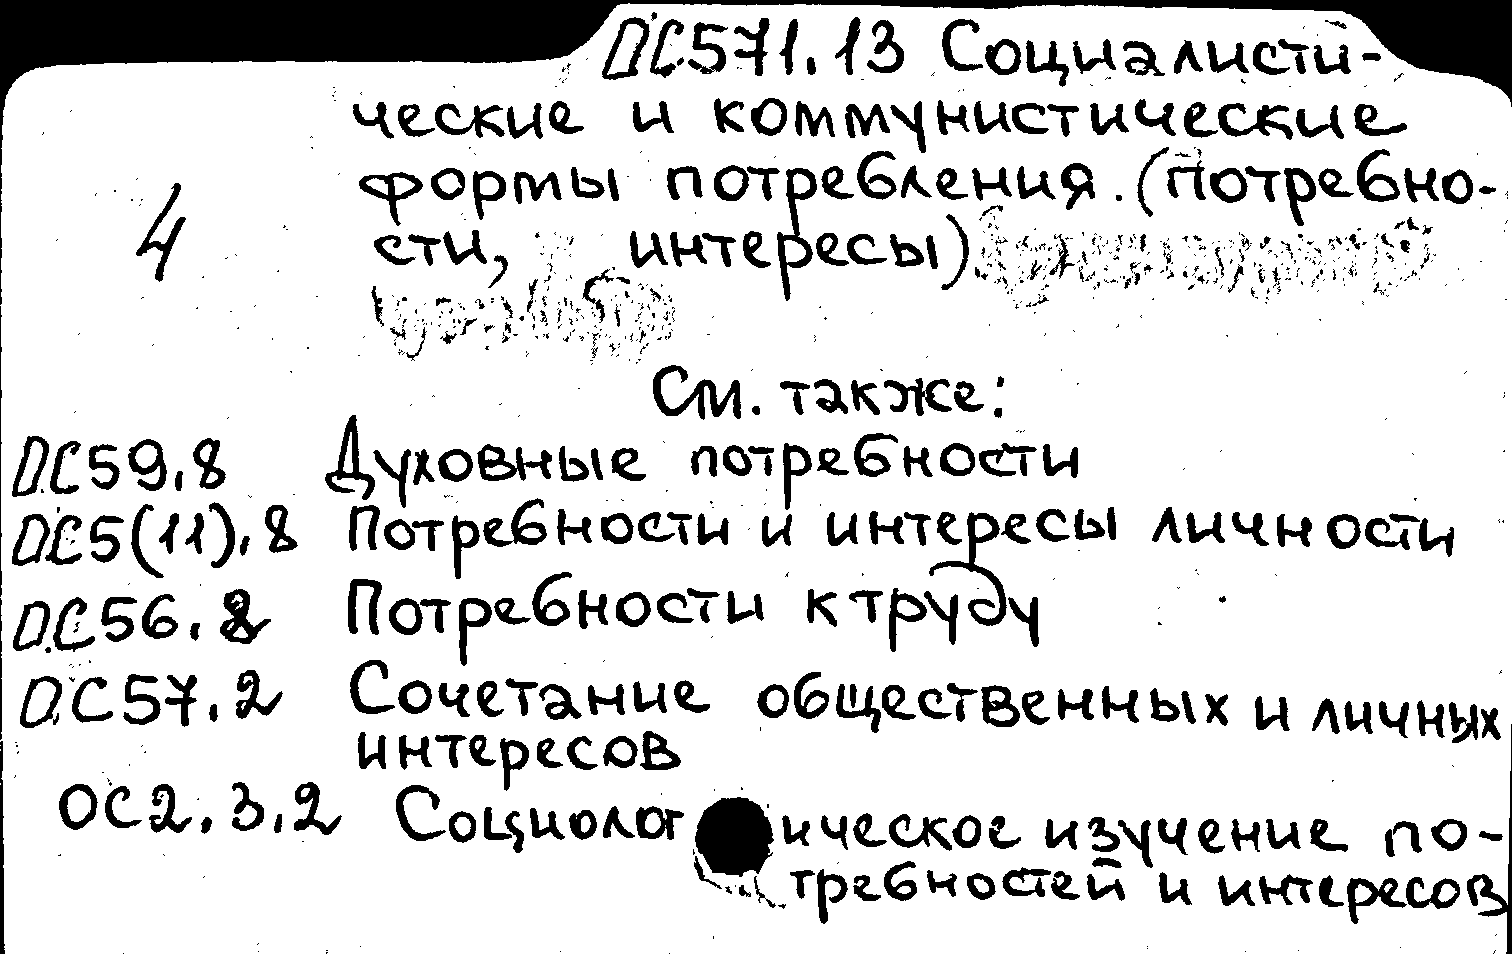 ОС571.13 Социалисти-
ческие и коммунистические
формы потребления. (Потребно-
4
сти, интересы)
См. также:
ОС59.8 Духовные потребности
ОС5(11).8 Потребности и интересы личности
ОС56.2 Потребности к труду
ОС57.2 Сочетание общественных и личных
интересов
ОС2.3.2 Социологическое изучение по-
требностей и интересов